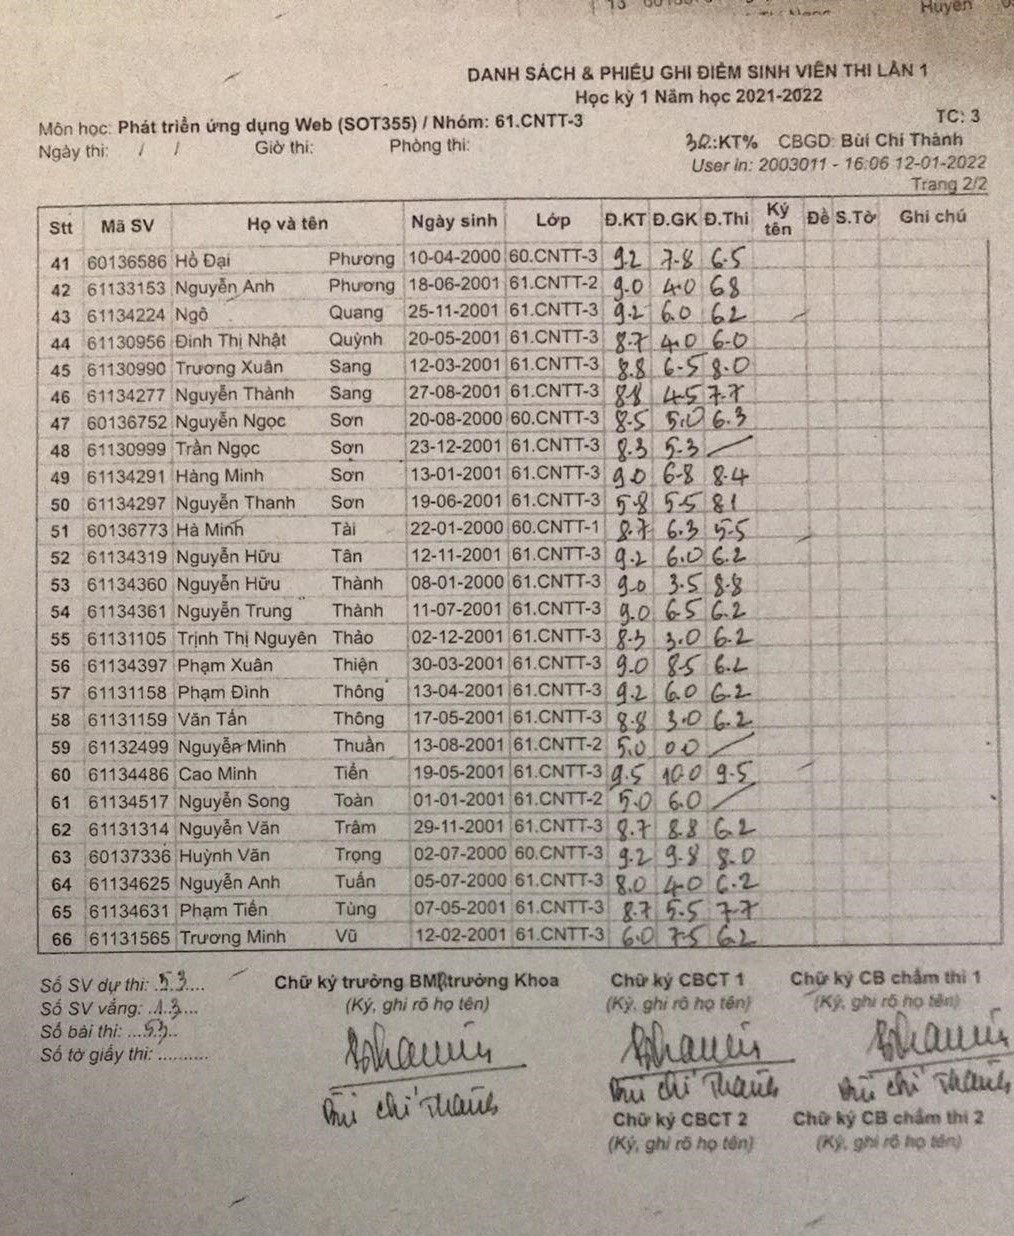 Huyền
DANH SÁCH & PHIẾU GHI ĐIỂM SINH VIÊN THI LẦN 1
Học kỳ 1 Năm học 2021-2022
TC: 3
Môn học: Phát triển ứng dụng Web (SOT355) / Nhóm: 61.CNTT-3
Ngày thi: / / Giờ thi: Phòng thi: :KT% CBGD: Bùi Chí Thành
User in: 2003011 - 16:06 12-01-2022
Trang 2/2
Stt Mã SV Họ và tên Ngày sinh Lớp Đ.KT Đ.GK Đ.Thi Ký tên Đề S.Tờ Ghi chú
41 60136586 Hồ Đại Phương 10-04-2000 60.CNTT-3 9.2 7.8 6.5
42 61133153 Nguyễn Anh Phương 18-06-2001 61.CNTT-2 9.0 4.0 6.8
43 61134224 Ngô Quang 25-11-2001 61.CNTT-3 9.2 6.0 6.2
44 61130956 Đinh Thị Nhật Quỳnh 20-05-2001 61.CNTT-3 8.7 4.0 6.0
45 61130990 Trương Xuân Sang 12-03-2001 61.CNTT-3 8.8 6.5 8.0
46 61134277 Nguyễn Thành Sang 27-08-2001 61.CNTT-3 8.8 4.5 7.7
47 60136752 Nguyễn Ngọc Sơn 20-08-2000 60.CNTT-3 8.5 5.0 6.3
48 61130999 Trần Ngọc Sơn 23-12-2001 61.CNTT-3 8.3 5.3
49 61134291 Hàng Minh Sơn 13-01-2001 61.CNTT-3 9.0 6.8 8.4
50 61134297 Nguyễn Thanh Sơn 19-06-2001 61.CNTT-3 5.8 5.5 8.1
51 60136773 Hà Minh Tài 22-01-2000 60.CNTT-1 8.7 6.3 5.5
52 61134319 Nguyễn Hữu Tân 12-11-2001 61.CNTT-3 9.2 6.0 6.2
53 61134360 Nguyễn Hữu Thành 08-01-2000 61.CNTT-3 9.0 3.5 8.8
54 61134361 Nguyễn Trung Thành 11-07-2001 61.CNTT-3 9.0 6.5 6.2
55 61131105 Trịnh Thị Nguyên Thảo 02-12-2001 61.CNTT-3 8.3 3.0 6.2
56 61134397 Phạm Xuân Thiện 30-03-2001 61.CNTT-3 9.0 8.5 6.2
57 61131158 Phạm Đình Thông 13-04-2001 61.CNTT-3 9.2 6.0 6.2
58 61131159 Văn Tấn Thông 17-05-2001 61.CNTT-3 8.8 3.0 6.2
59 61132499 Nguyễn Minh Thuần 13-08-2001 61.CNTT-2 5.0 0.0
60 61134486 Cao Minh Tiến 19-05-2001 61.CNTT-3 9.5 10.0 9.5
61 61134517 Nguyễn Song Toàn 01-01-2001 61.CNTT-2 5.0 6.0
62 61131314 Nguyễn Văn Trâm 29-11-2001 61.CNTT-3 8.7 8.8 6.2
63 60137336 Huỳnh Văn Trọng 02-07-2000 60.CNTT-3 9.2 9.8 8.0
64 61134625 Nguyễn Anh Tuấn 05-07-2000 61.CNTT-3 8.0 4.0 6.2
65 61134631 Phạm Tiến Tùng 07-05-2001 61.CNTT-3 8.7 5.5 7.7
66 61131565 Trương Minh Vũ 12-02-2001 61.CNTT-3 6.0 7.5 6.2
Số SV dự thi: 53 Chữ ký trưởng BM/trưởng Khoa Chữ ký CBCT 1 Chữ ký CB chấm thi 1
Số SV vắng: 13 (Ký, ghi rõ họ tên) (Ký, ghi rõ họ tên) (Ký, ghi rõ họ tên)
Số bài thi: 53
Số tờ giấy thi: ..........
Bùi Chí Thành Bùi Chí Thành Bùi Chí Thành
Chữ ký CBCT 2 Chữ ký CB chấm thi 2
(Ký, ghi rõ họ tên) (Ký, ghi rõ họ tên)